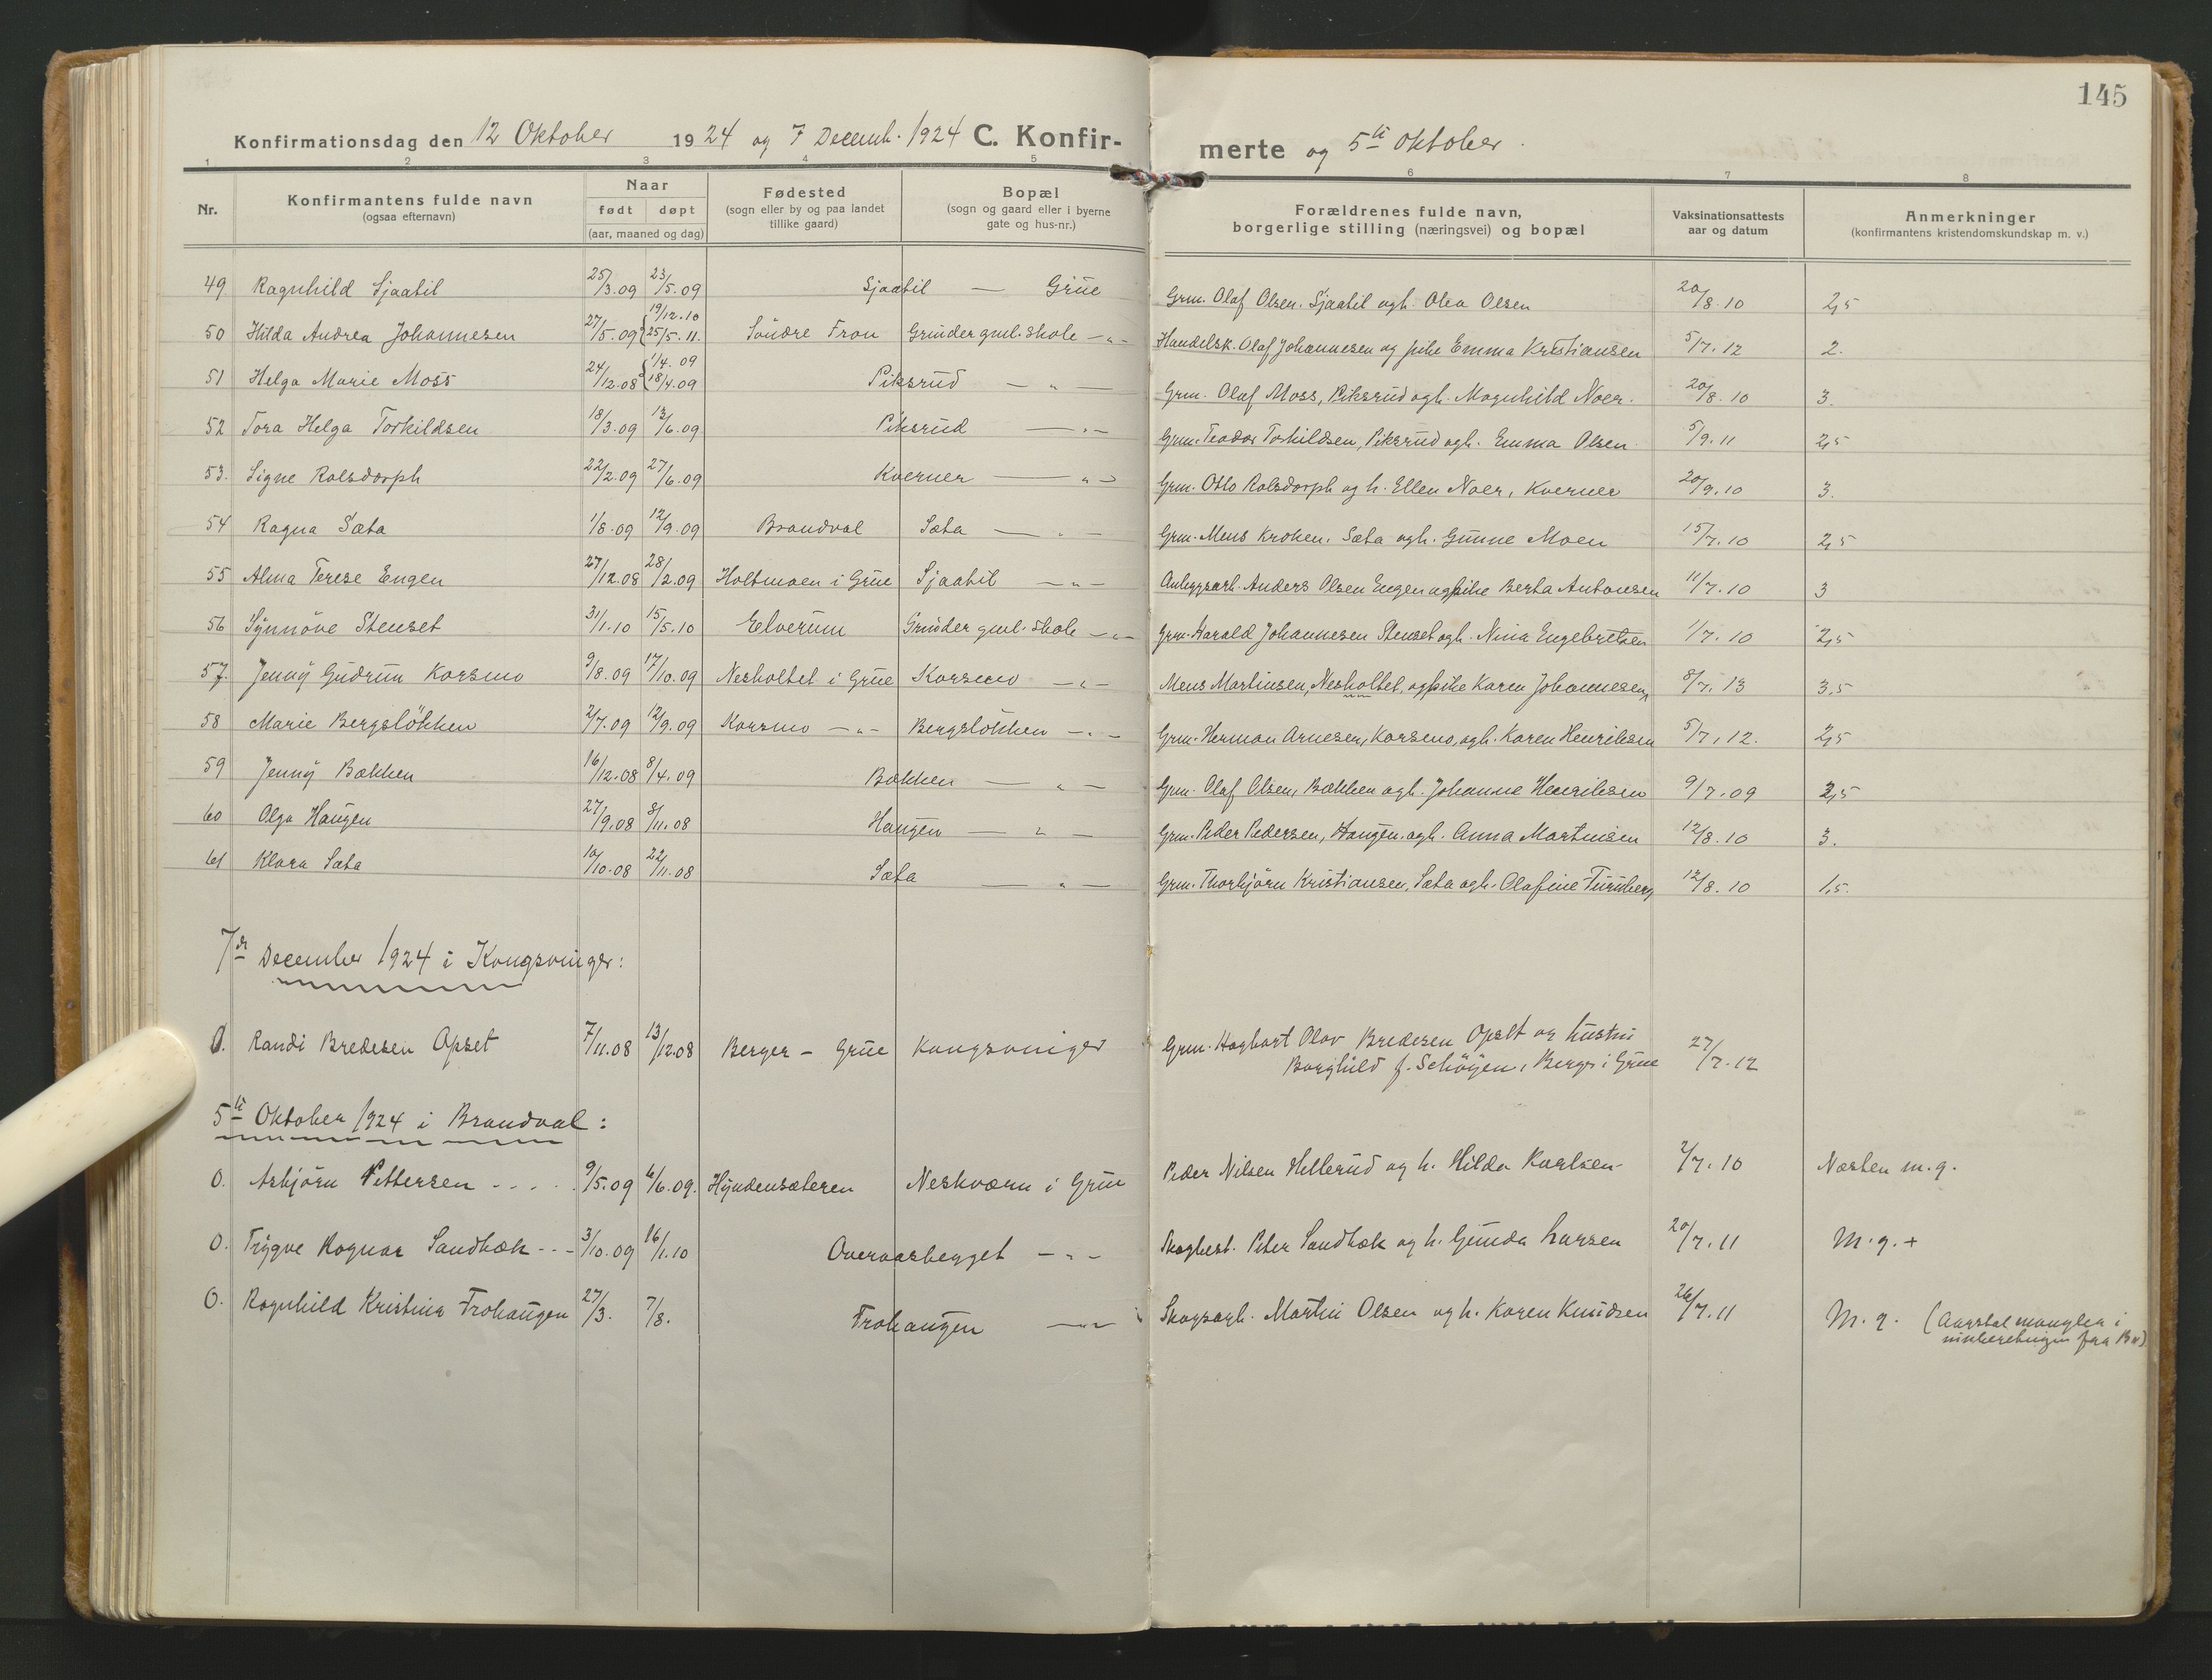 145
Konfirmationsdag den 12 Oktober 1924 og 7 Decemb. 1924 C. Konfir-merte og 5te Oktober.
1 2 3 4 5 6 7 8
Nr. Konfirmantens fulde navn (ogsaa efternavn) Naar født døpt (aar, maaned og dag) Fødested (sogn eller by og paa landet tillike gaard) Bopæl (sogn og gaard eller i byerne gate og hus-nr.) Forældrenes fulde navn, borgerlige stilling (næringsvei) og bopæl Vaksinationsattests aar og datum Anmerkninger (konfirmantens kristendomskundskap m. v.)
49 Ragnhild Sjaatil 25/3.09 23/5.09 Sjaatil — Grüe Grm. Olaf Olsen Sjaatil og h. Olea Olsen 20/8.10 2,5
50 Hilda Andrea Johannesen 27/5.09 { 19/12.10 25/5.11. Söndre Fron Grinder gml. skole -"- Handelsk. Olaf Johannesen og pike Emma Kristiansen 5/7.12 2.
51 Helga Marie Moss 24/12.08 { 1/4.09 18/4.09 Piksrüd — " — Grm. Olaf Moss, Piksrüd og h. Magnhild Noer. 20/8.10 3.
52 Tora Helga Torkildsen 18/3.09 13/6.09 Piksrüd — " — Grm. Teodor Torkildsen, Piksrüd og h. Emma Olsen. 5/9.11 2,5
53. Signe Rolsdorph 22/2.09 27/6.09 Kverner — " — Grm. Otto Rolsdorph og h. Ellen Noer, Kverner 20/9.10 3.
54 Ragna Sæta 1/8.09 12/9.09 Brandval Sæta — " — Grm. Mens Kroken, Sæta og h. Günne Moen 15/7.10 2,5
55 Alma Terese Engen 27/12.08 28/2.09 Holtmoen i Grüe Sjaatil — " — Anleggsarb. Anders Olsen Engen og pike Berta Antonsen 11/7.10 3
56 Synnöve Stenset 31/1.10 15/5.10 Elverüm Grinder gml. skole -"- Grm. Harald Johannesen Stenset og h. Nina Engebretsen 1/7.10 2,5
57. Jenny Güdrün Korsmo 9/8.09 17/10.09 Nesholtet i Grüe Korsmo — " — Mens Martinsen, Nesholtet, og pike Karen Johannesen, 8/7.13 3,5
58 Marie Bergslökken 2/7.09 12/9.09 Korsmo -"- Bergslökken -"- Grm. Herman Arnesen, Korsmo, og h. Karen Henriksen 5/7.12. 2,5
59 Jenny Bækken 16/12.08 8/4.09 Bækken — " — Grm. Olaf Olsen, Bækken og h. Johanne Henriksen 9/7.09 2,5
60 Olga Haügen 27/9.08 8/11.08 Haügen — " — Grm. Peder Pedersen, Haügen. og h. Anna Martinsen 12/8.10 3.
61 Klara Sæta 10/10.08 22/11.08 Sæta — " — Grm. Thorbjörn Kristiansen, Sæta og h. Olafine Türüberg 12/8.10 1,5.
7de December 1924 i Kongsvinger:
0. Randi Bredesen Opset 7/11.08 13/12.08 Berger - Grüe Kongsvinger Grm. Hagbart Olav Bredesen Opset og hüstrü 27/7.12
Borghild f. Schöyen, Berger i Grüe
5te Oktober 1924 i Brandval:
0. Asbjörn Pettersen - - - - 9/5.09 6/6.09. Hyndensæteren Neskværn i Grüe Peder Nilsen Hellerüd og h. Hilda Karlsen. 2/7.10 Næsten m.g.
0. Trygve Ragnar Sandbæk - - - 3/10.09 16/1.10 Overaasbygget -"- Skogbest. Peter Sandbæk og h. Günda Larsen 20/7.11 M.g.+
0. Ragnhild Kristine Frohaügen 27/3. 7/8. Frohaügen -"- Skogsarb. Martin Olsen og h. Karen Knüdsen 26/7.11 M.g. (Aarstal mangler i
innberetningen fra Br.)